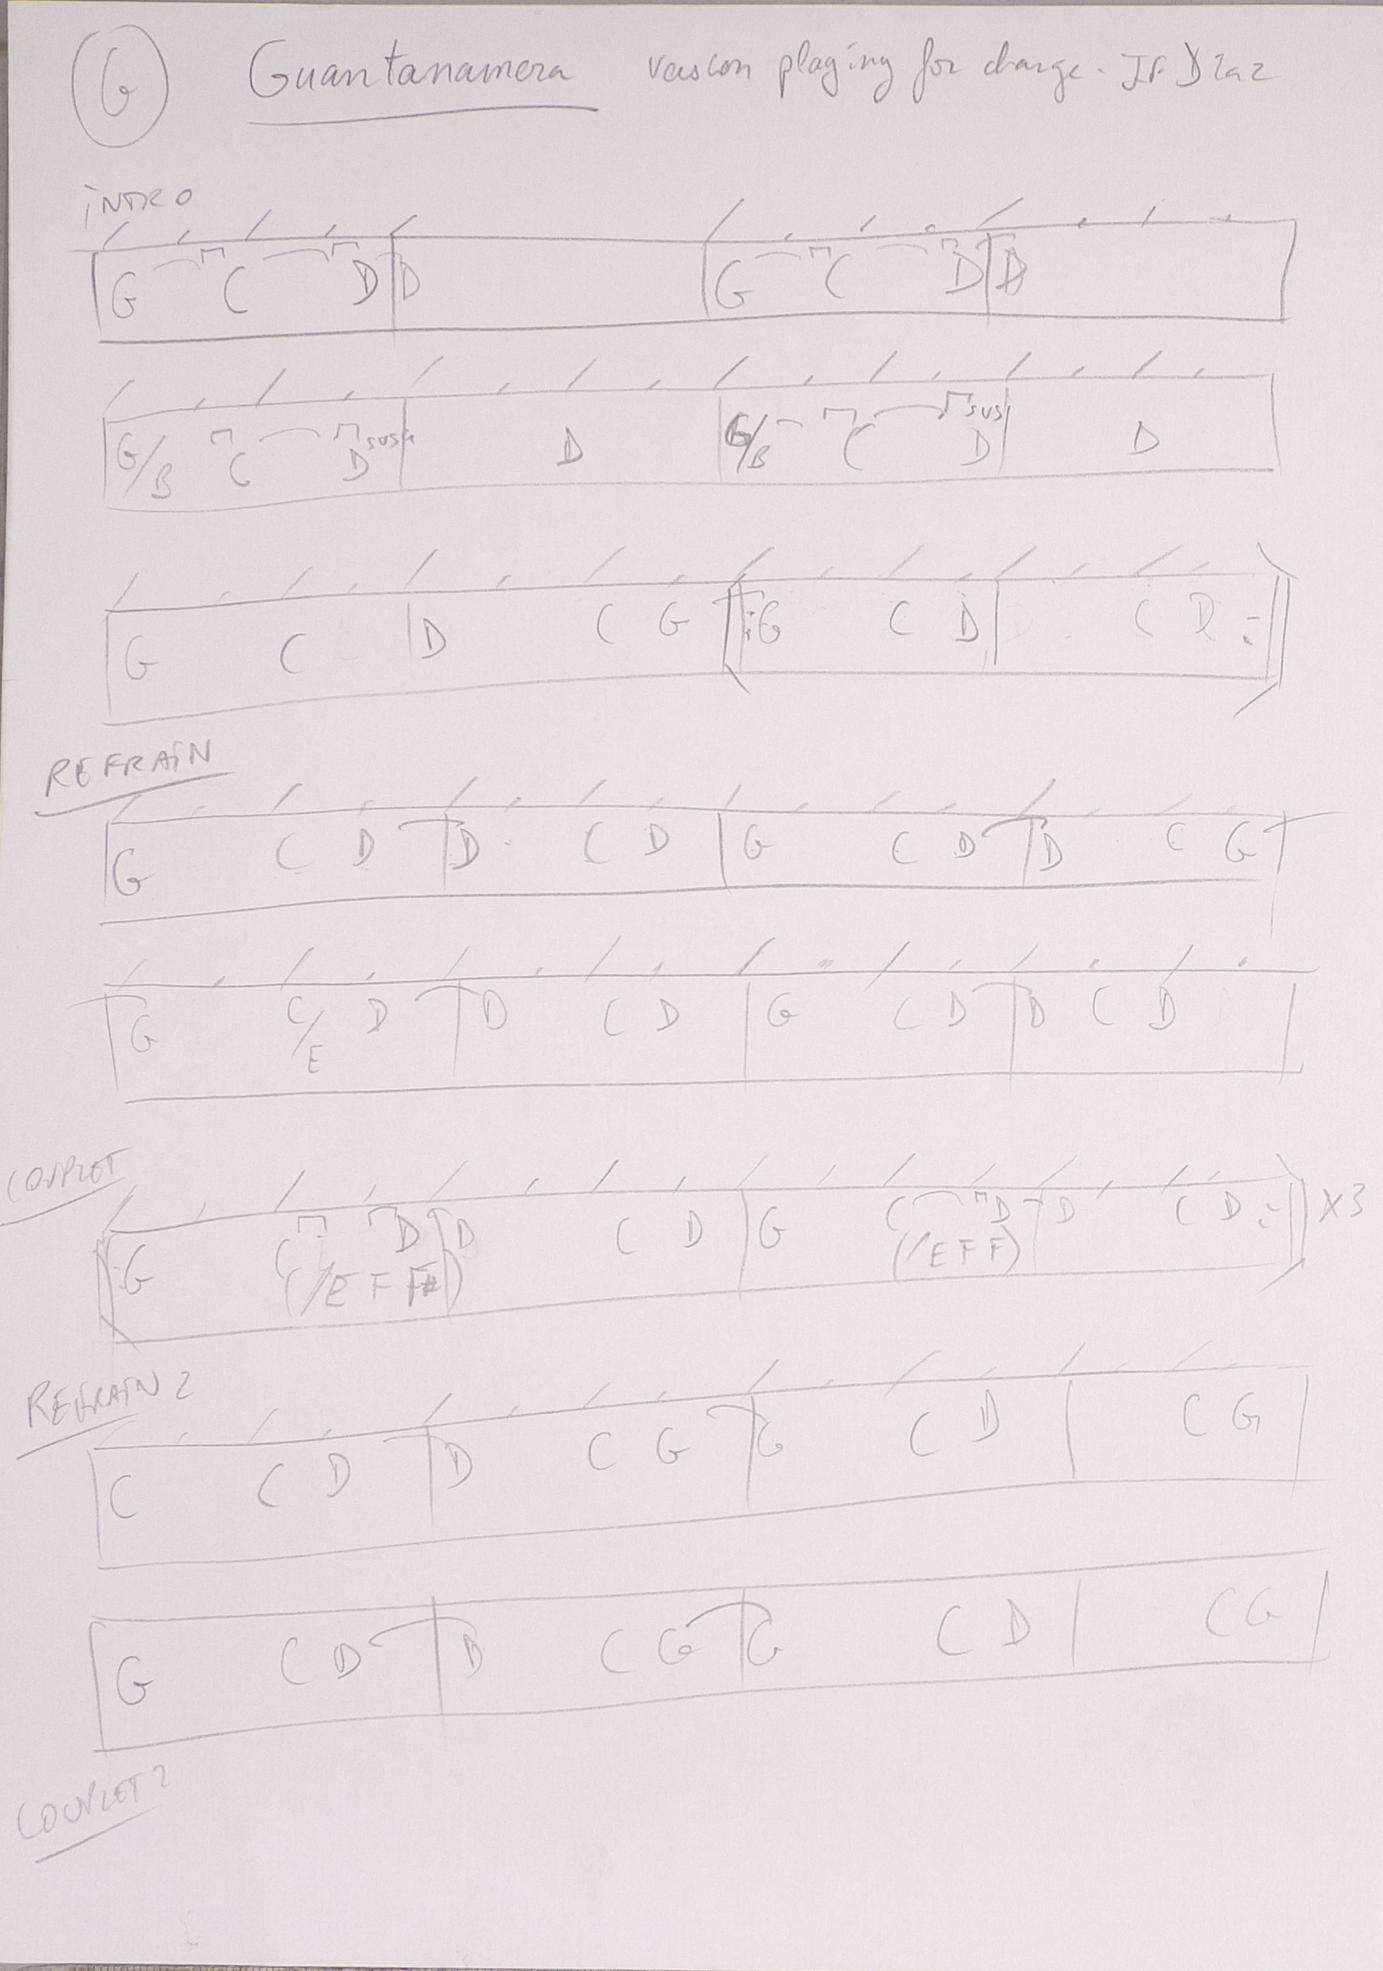 G Guantanamera version playing for change.
INTRO
G C D | D | G C D | D
G/B C D sus4 | D | G/B C D sus | D
G C | D C G |: G C D | C D :|
REFRAIN
G C D | D C D | G C D | D C G
G C/E D | D C D | G C D | D C D
COUPLET
|: G C D | D C D | G C D | D C D :| X3
(/E F F#) (/E F F)
REFRAIN 2
C C D | D C G | G C D | C G
G C D | D C G | G C D | C G
COUPLET 2